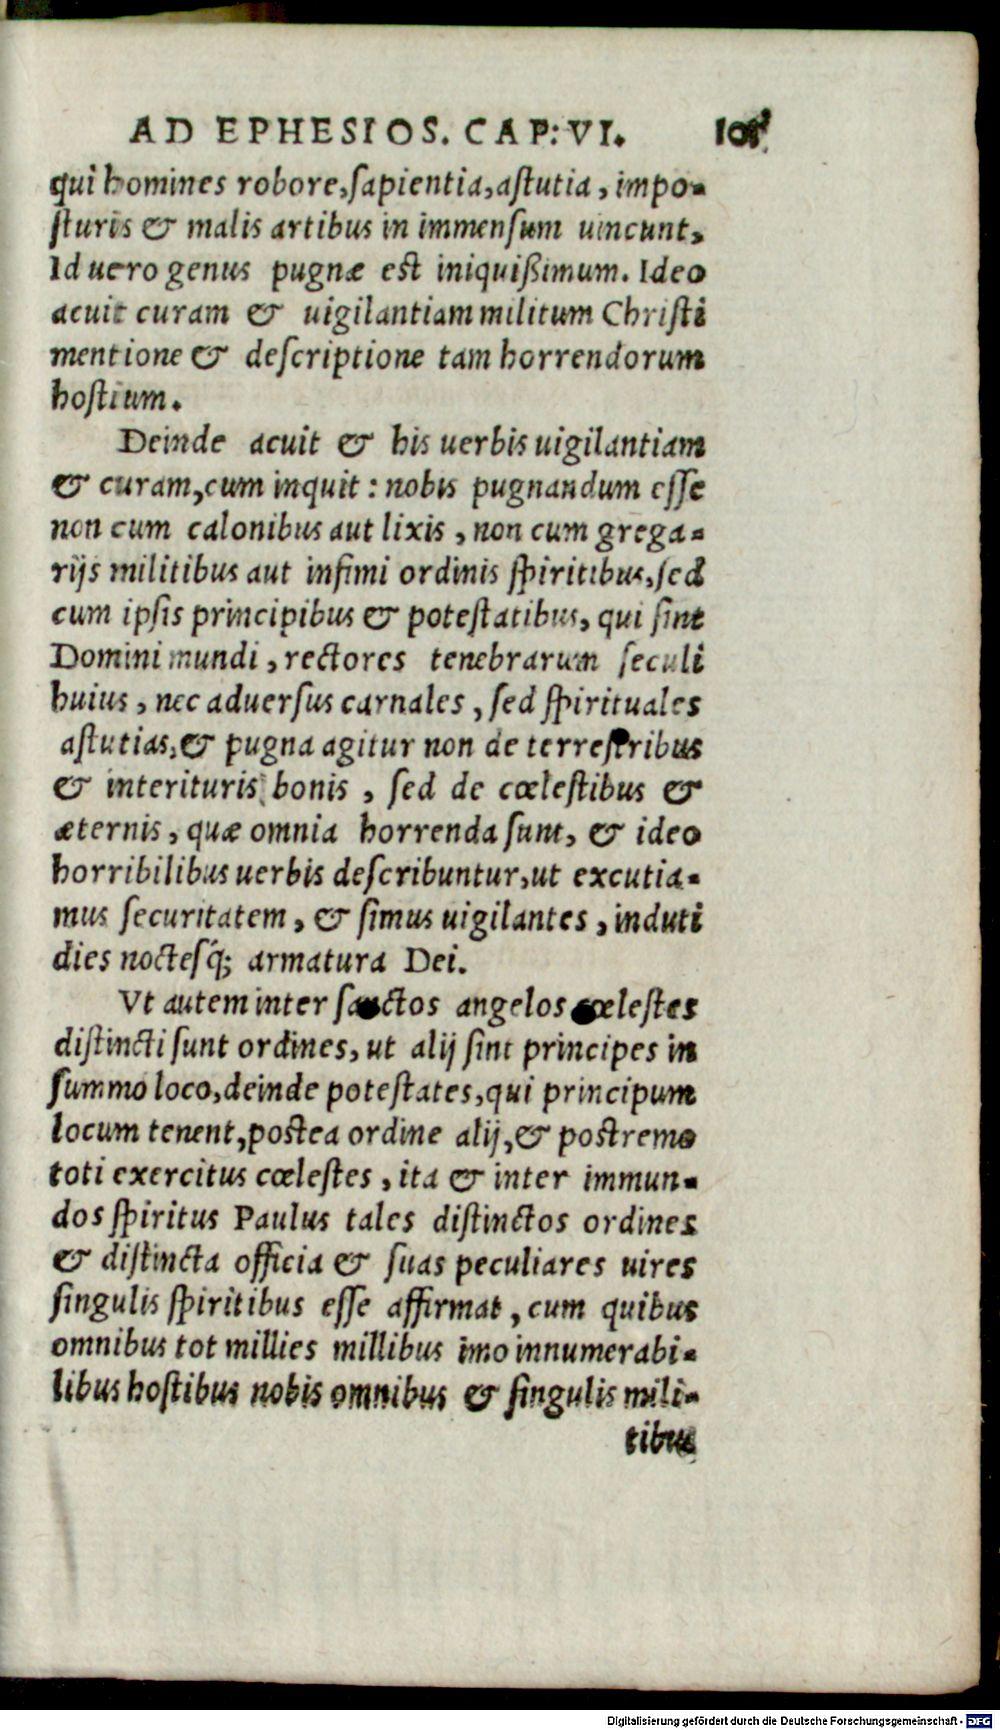 AD EPHESIOS. CAP: VI.
qui homines robore, sapientia, astutia, impo-
sturis & malis artibus in immensum uincunt,
Id uero genus pugnæ est iniquißimum. Ideo
acuit curam & uigilantiam militum Christi
mentione & descriptione tam horrendorum
hostium.
Deinde acuit & his uerbis uigilantiam
& curam, cum inquit: nobis pugnandum esse
non cum calonibus aut lixis, non cum grega-
rijs militibus aut infimi ordinis spiritibus, sed
cum ipsis principibus & potestatibus, qui sint
Domini mundi, rectores tenebrarum seculi
huius, nec aduersus carnales, sed spirituales
astutias, & pugna agitur non de terrestribus
& interituris bonis, sed de cœlestibus &
æternis, quæ omnia horrenda sunt, & ideo
horribilibus uerbis describuntur, ut excutia-
mus securitatem, & simus uigilantes, induti
dies noctesq́; armatura Dei.
Vt autem inter sanctos angelos cœlestes
distincti sunt ordines, ut alij sint principes in
summo loco, deinde potestates, qui principum
locum tenent, postea ordine alij, & postremo
toti exercitus cœlestes, ita & inter immun-
dos spiritus Paulus tales distinctos ordines
& distincta officia & suas peculiares uires
singulis spiritibus esse affirmat, cum quibus
omnibus tot millies millibus imo innumerabi-
libus hostibus nobis omnibus & singulis mili-
tibus
Digitalisierung gefördert durch die Deutsche Forschungsgemeinschaft - DFG